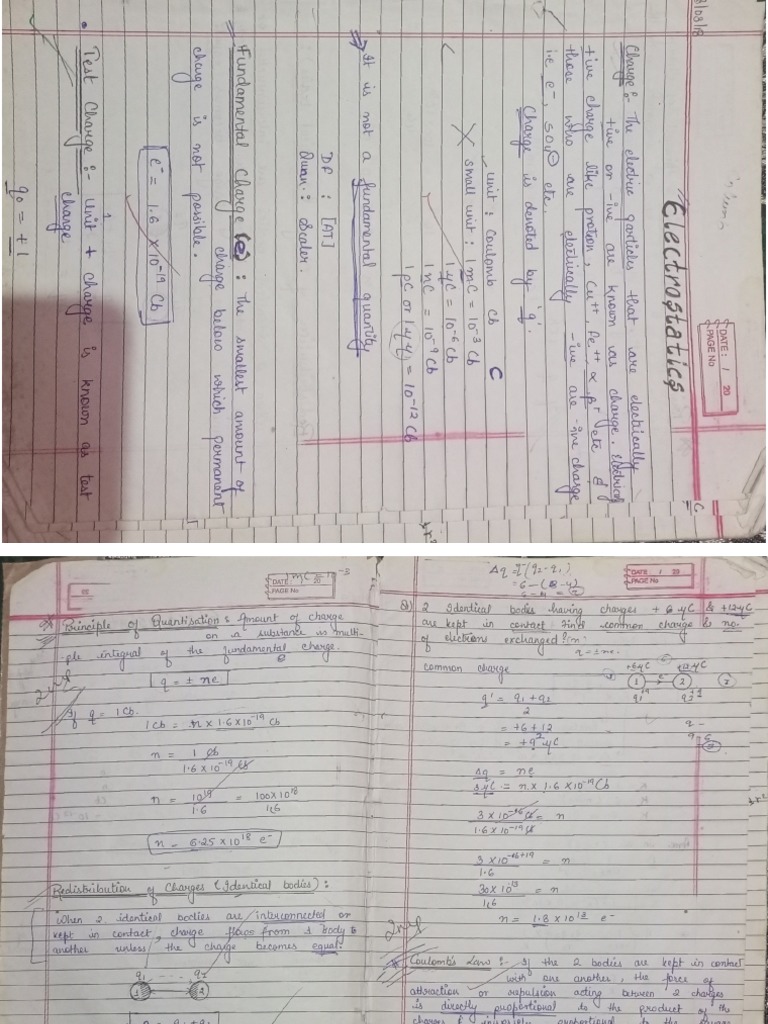 DATE: / 20
PAGE No
Electrostatics
Charge:- The electric particles that are electrically
+ive or -ive are known as charge. Electrical
+ive charge like proton, Cu++, Fe++ α, β+ etc &
those who are electrically -ive are -ive charge
i.e e-, SO4 etc.
Charge is denoted by 'q'.
unit: Coulomb cb C
small unit: 1 mC = 10-3 Cb
1 µC = 10-6 Cb
1 nC = 10-9 Cb
1 pC or 1 µµ = 10-12 Cb
⇒ It is not a fundamental quantity
DF: [AT]
Quan.: Scaler.
Fundamental Charge (e): The smallest amount of
charge below which permanent
charge is not possible.
e- = 1.6 × 10-19 Cb
Test Charge:- Unit + charge is known as test
charge
q0 = +1
mC = 10-3
DATE: 20
PAGE No
Principle of Quantisation: Amount of charge
on a substance is multi-
ple integral of the fundamental charge.
q = ± ne
If q = 1 Cb.
1 Cb = n × 1.6 × 10-19 Cb
n = 1 Cb
1.6 × 10-19 Cb
n = 10^19 = 100 × 10^18
1.6 1.6
n = 6.25 × 10^18 e-
Redistribution of Charges (Identical bodies):
When 2 identical bodies are interconnected or
kept in contact, charge flows from 1 body to
another unless the charge becomes equal.
q1 q2
1 2
DATE: / 20
PAGE No
2 Identical bodies having charges + 6 µC & +12µC
are kept in contact. Find common charge & no.
of elections exchanged?
q = ± ne.
common charge
+6µC +12µC
1 2
q' = q1 + q2
2
= +6 + 12
= +9 µC
Δq = ne
3µC = n × 1.6 × 10-19 Cb
3 × 10-6 = n
1.6 × 10-19
3 × 10-6+19 = n
1.6
30 × 10^13 = n
1.6
n = 1.8 × 10^13 e-
Coulomb's Law:- If the 2 bodies are kept in contact
with one another, the force of
attraction or repulsion acting between 2 charges
is directly proportional to the product of the